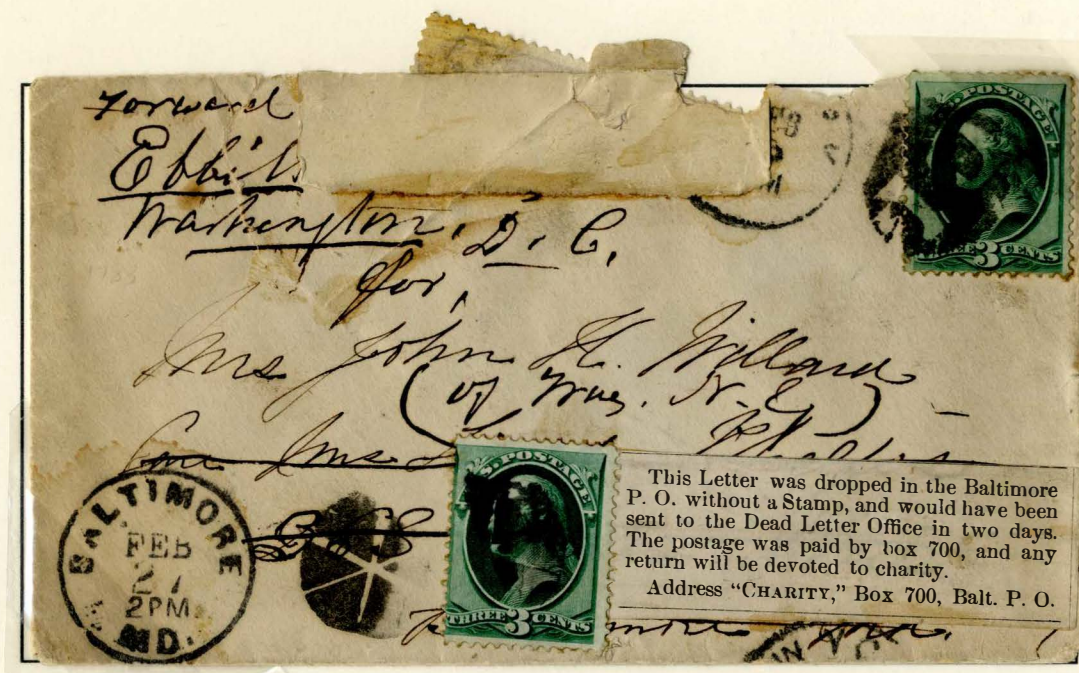 Forward
Ebbitt
Washington, D. C.
for,
Mrs John H. Willard
(of Troy. N. Y.)
Care Mrs
U.S. POSTAGE
THREE 3 CENTS
U.S. POSTAGE
THREE 3 CENTS
BALTIMORE
FEB
27
2PM
MD.
This Letter was dropped in the Baltimore
P. O. without a Stamp, and would have been
sent to the Dead Letter Office in two days.
The postage was paid by box 700, and any
return will be devoted to charity.
Address "CHARITY," Box 700, Balt. P. O.